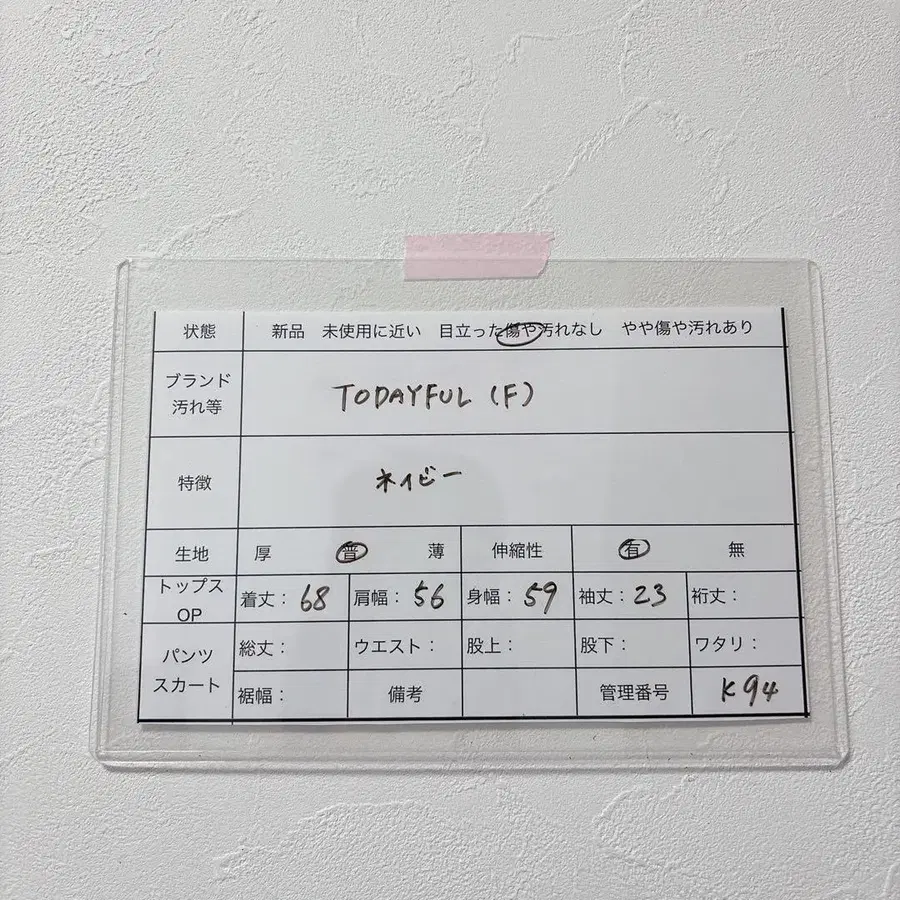 状態 新品 未使用に近い 目立った傷や汚れなし やや傷や汚れあり
ブランド
汚れ等
TODAYFUL (F)
特徴 ネイビー
生地 厚 普 薄 伸縮性 有 無
トップス
OP
着丈：68 肩幅：56 身幅：59 袖丈：23 裄丈：
パンツ
スカート
総丈： ウエスト： 股上： 股下： ワタリ：
裾幅： 備考 管理番号 K94